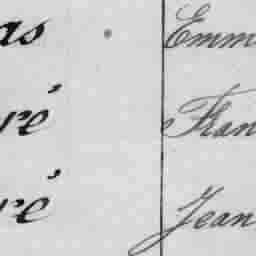 as Emm
ré Fran
ré Jean